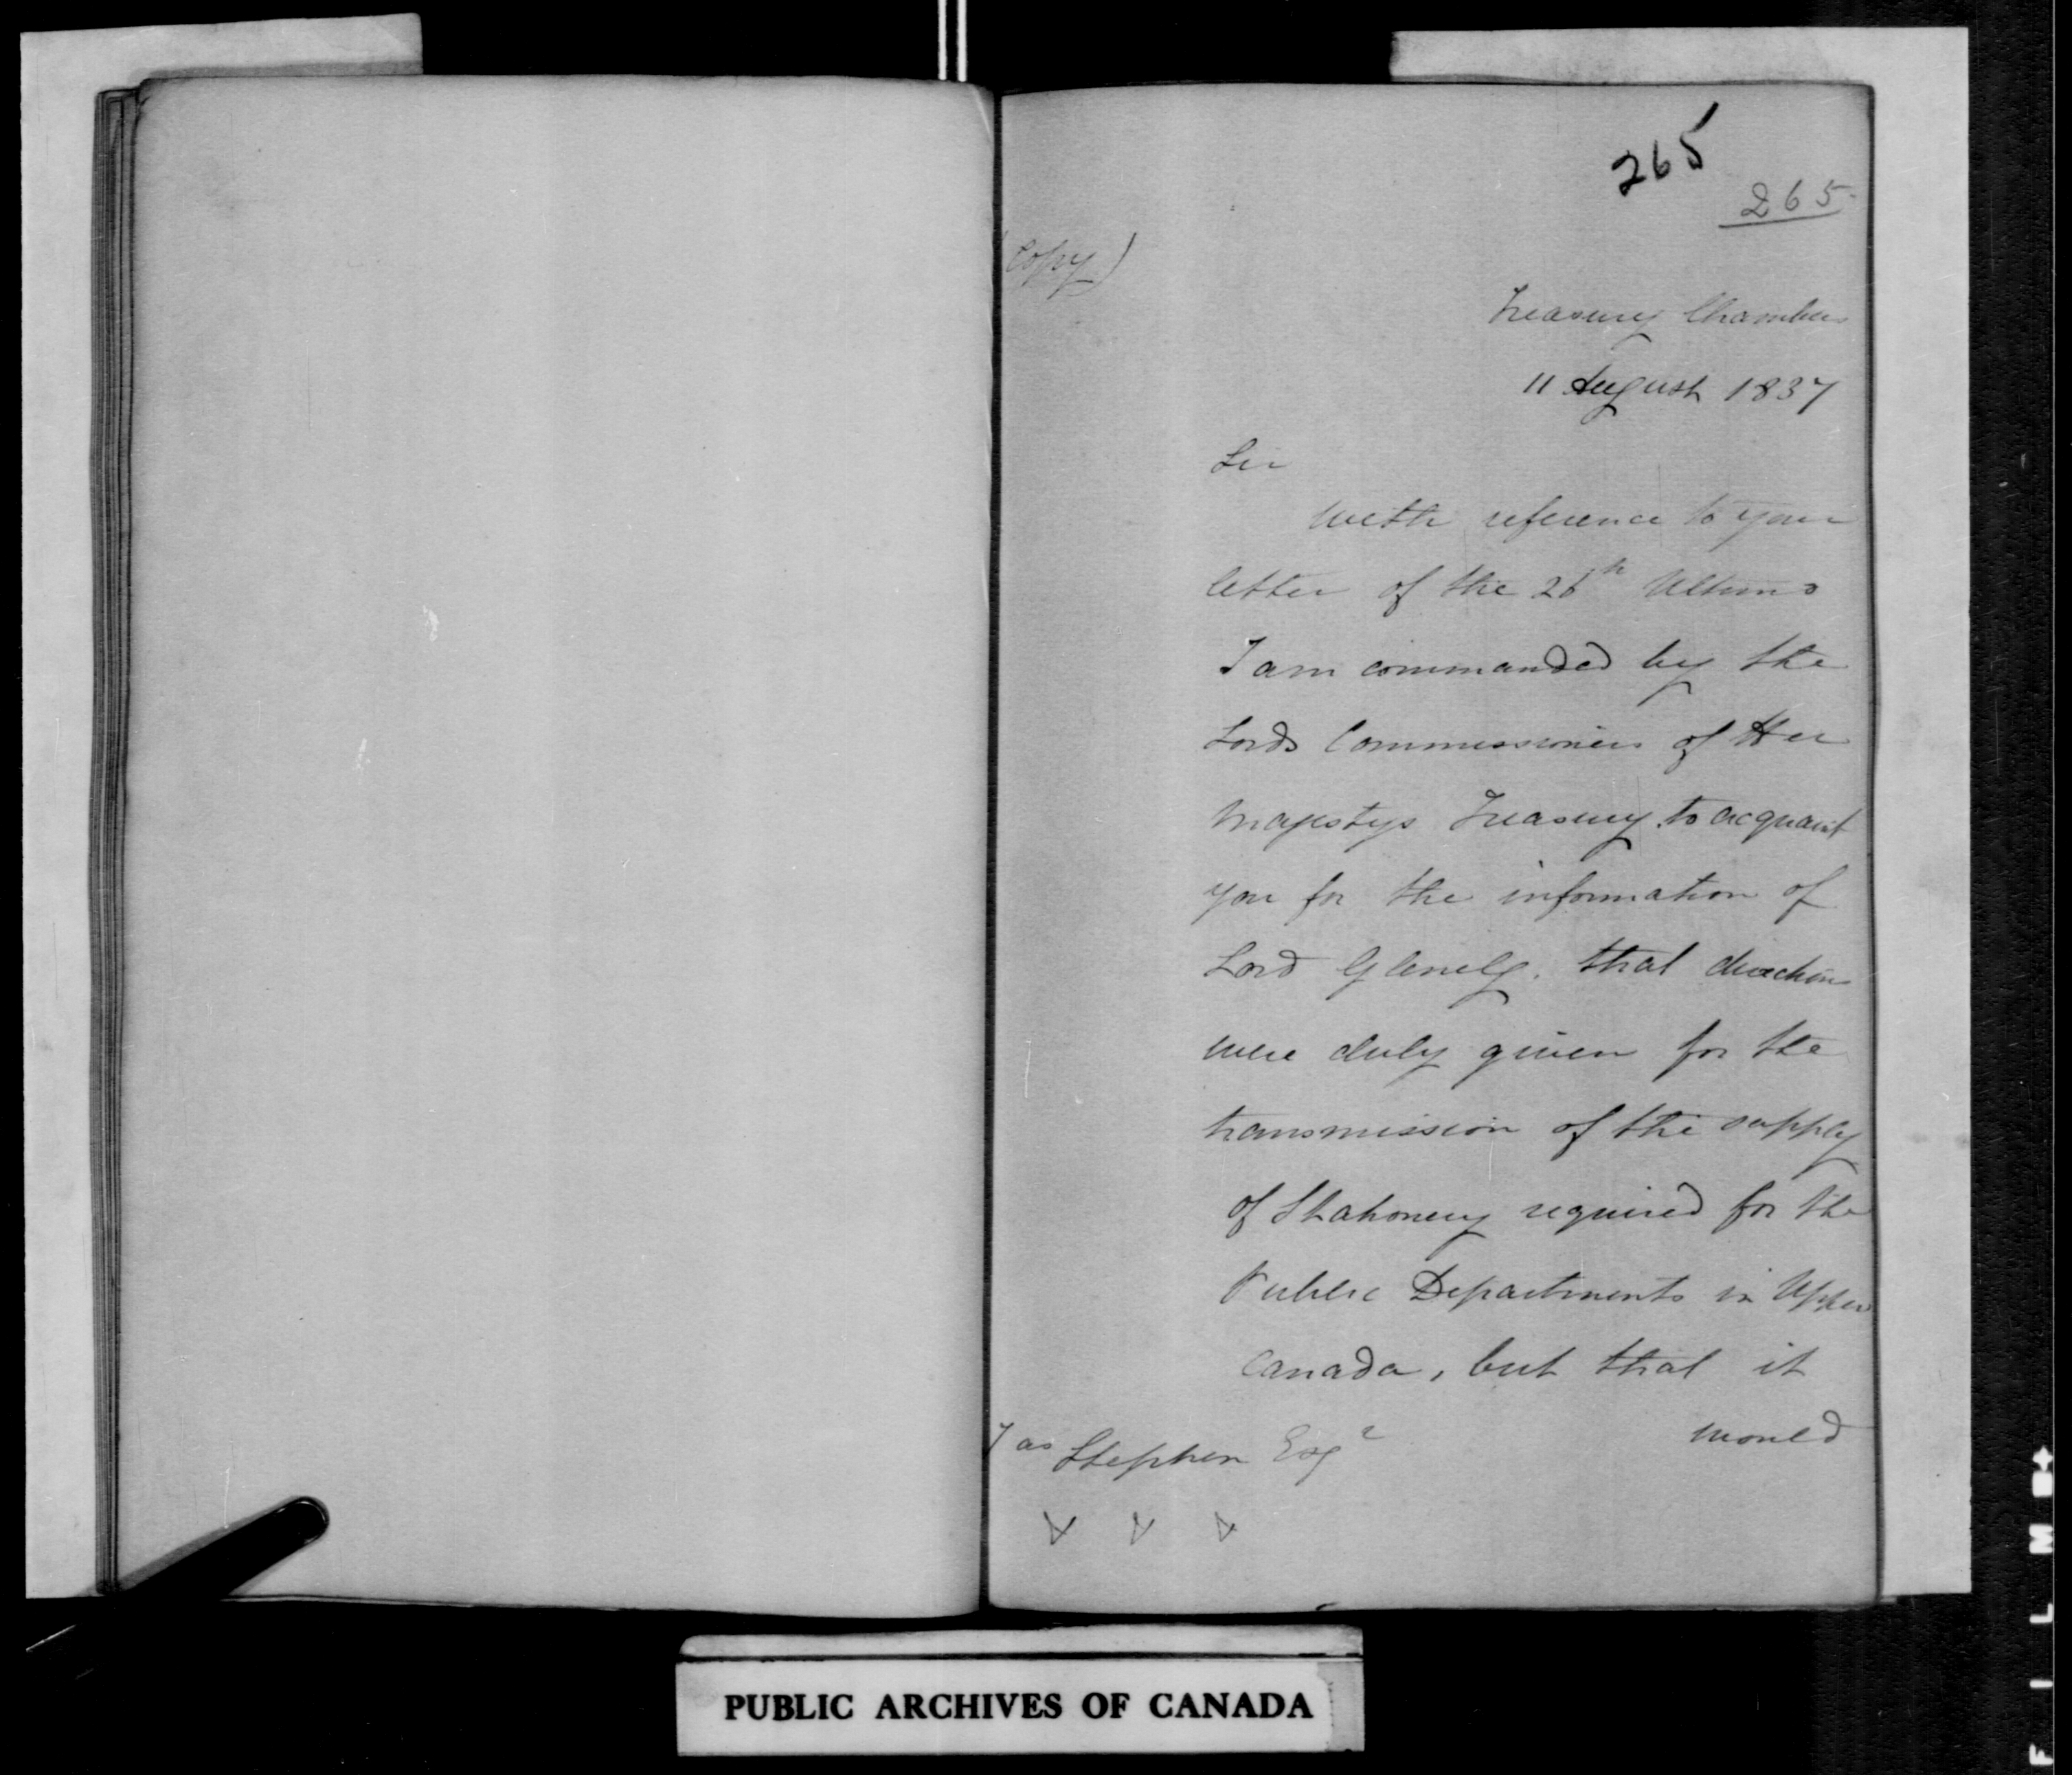 265
265
(Copy)
Treasury Chambers
11 August 1837
Sir
With reference to your
letter of the 26th Ultimo
I am commanded by the
Lords Commissioners of Her
Majestys Treasury to acquaint
you for the information of
Lord Glenelg, that directions
were duly given for the
transmission of the supply
of Stationery required for the
Public Departments in Upper
Canada, but that it
would
Jas Stephen Esqr
PUBLIC ARCHIVES OF CANADA
FILMÉ